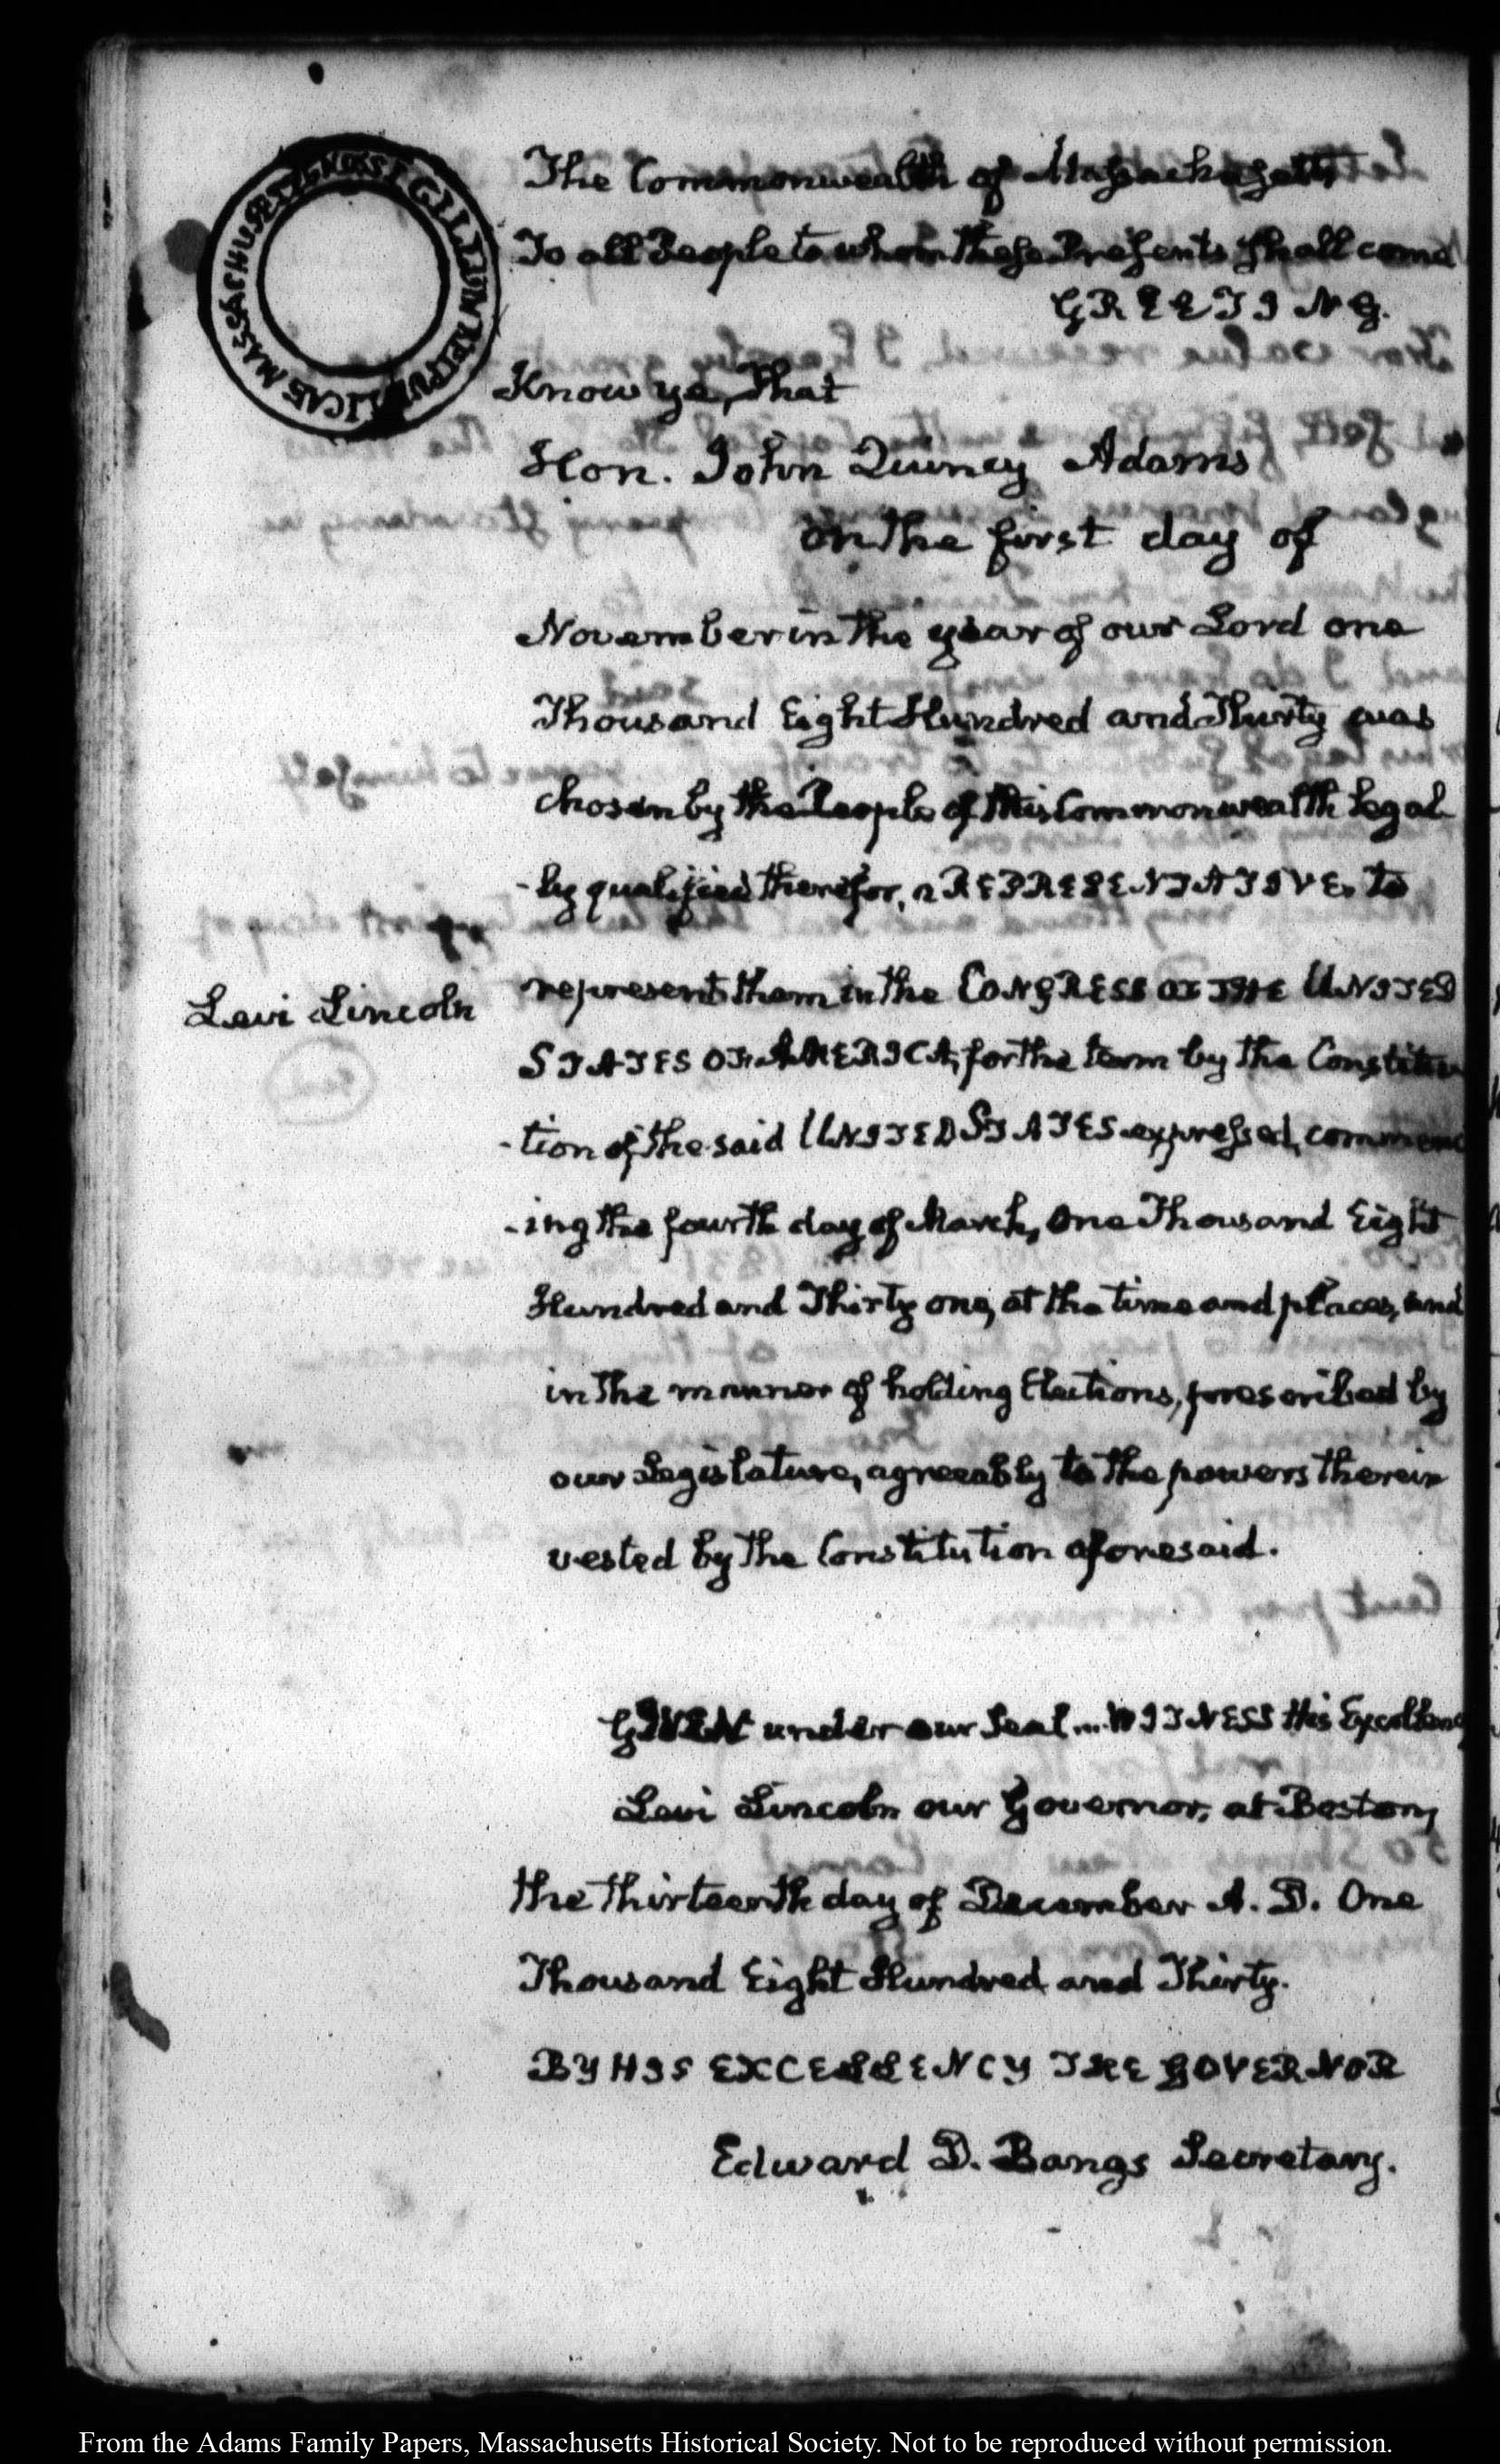 SIGILLUM REIPUBLICAE MASSACHUSETTENSIS
The Commonwealth of Massachusetts
To all People to whom these Presents shall come
GREETING.
Know ye, That
Hon. John Quincy Adams
on the first day of
November in the year of our Lord one
Thousand Eight Hundred and Thirty was
chosen by the People of this Commonwealth legal
-ly qualified therefor, a REPRESENTATIVE, to
Levi Lincoln
represent them in the CONGRESS OF THE UNITED
STATES OF AMERICA, for the term by the Constitu
-tion of the said UNITED STATES expressed, commenc
-ing the fourth day of March, One Thousand Eight
Hundred and Thirty one, at the time and places, and
in the manner of holding Elections, prescribed by
our Legislature, agreeably to the powers therein
vested by the Constitution aforesaid.
GIVEN under our Seal... WITNESS His Excellency
Levi Lincoln our Governor, at Boston,
the thirteenth day of December A. D. One
Thousand Eight Hundred and Thirty.
BY HIS EXCELLENCY THE GOVERNOR
Edward D. Bangs Secretary.
From the Adams Family Papers, Massachusetts Historical Society. Not to be reproduced without permission.